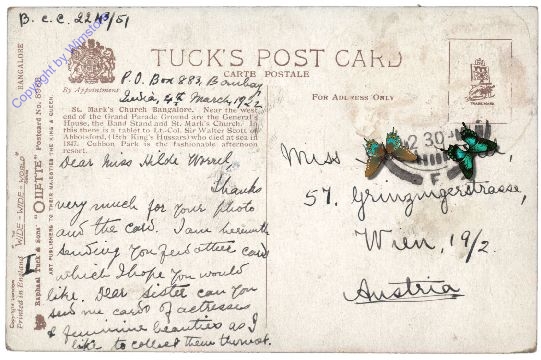 B. C. C. 2243/51
Copyright by Winston
BANGALORE
TUCK'S POST CARD
CARTE POSTALE
By Appointment
FOR ADDRESS ONLY
TRADE MARK
P.O. Box 883, Bombay
India, 4th March, 1922
St. Mark's Church Bangalore. Near the west
end of the Grand Parade Ground are the General's
House, the Band Stand and St. Mark's Church. In
this there is a tablet to Lt.-Col. Sir Walter Scott of
Abbotsford, (15th King's Hussars) who died at sea in
1847. Cubbon Park is the fashionable afternoon
resort.
Dear Miss Hilde
Thanks
very much for your photo
and the card. I am herewith
sending you find other card
which I hope you would
like. Dear sister can you
send me cards of actresses
& feminine beauties as I
like to collect them the most.
Miss
57. Grinzingerstrasse,
Wien, 19/2.
Austria
2 30
F
Copyright London
Printed in England
"WIDE-WIDE-WORLD"
Raphael Tuck & Sons' "OILETTE" Postcard No.
ART PUBLISHERS TO THEIR MAJESTIES THE KING &